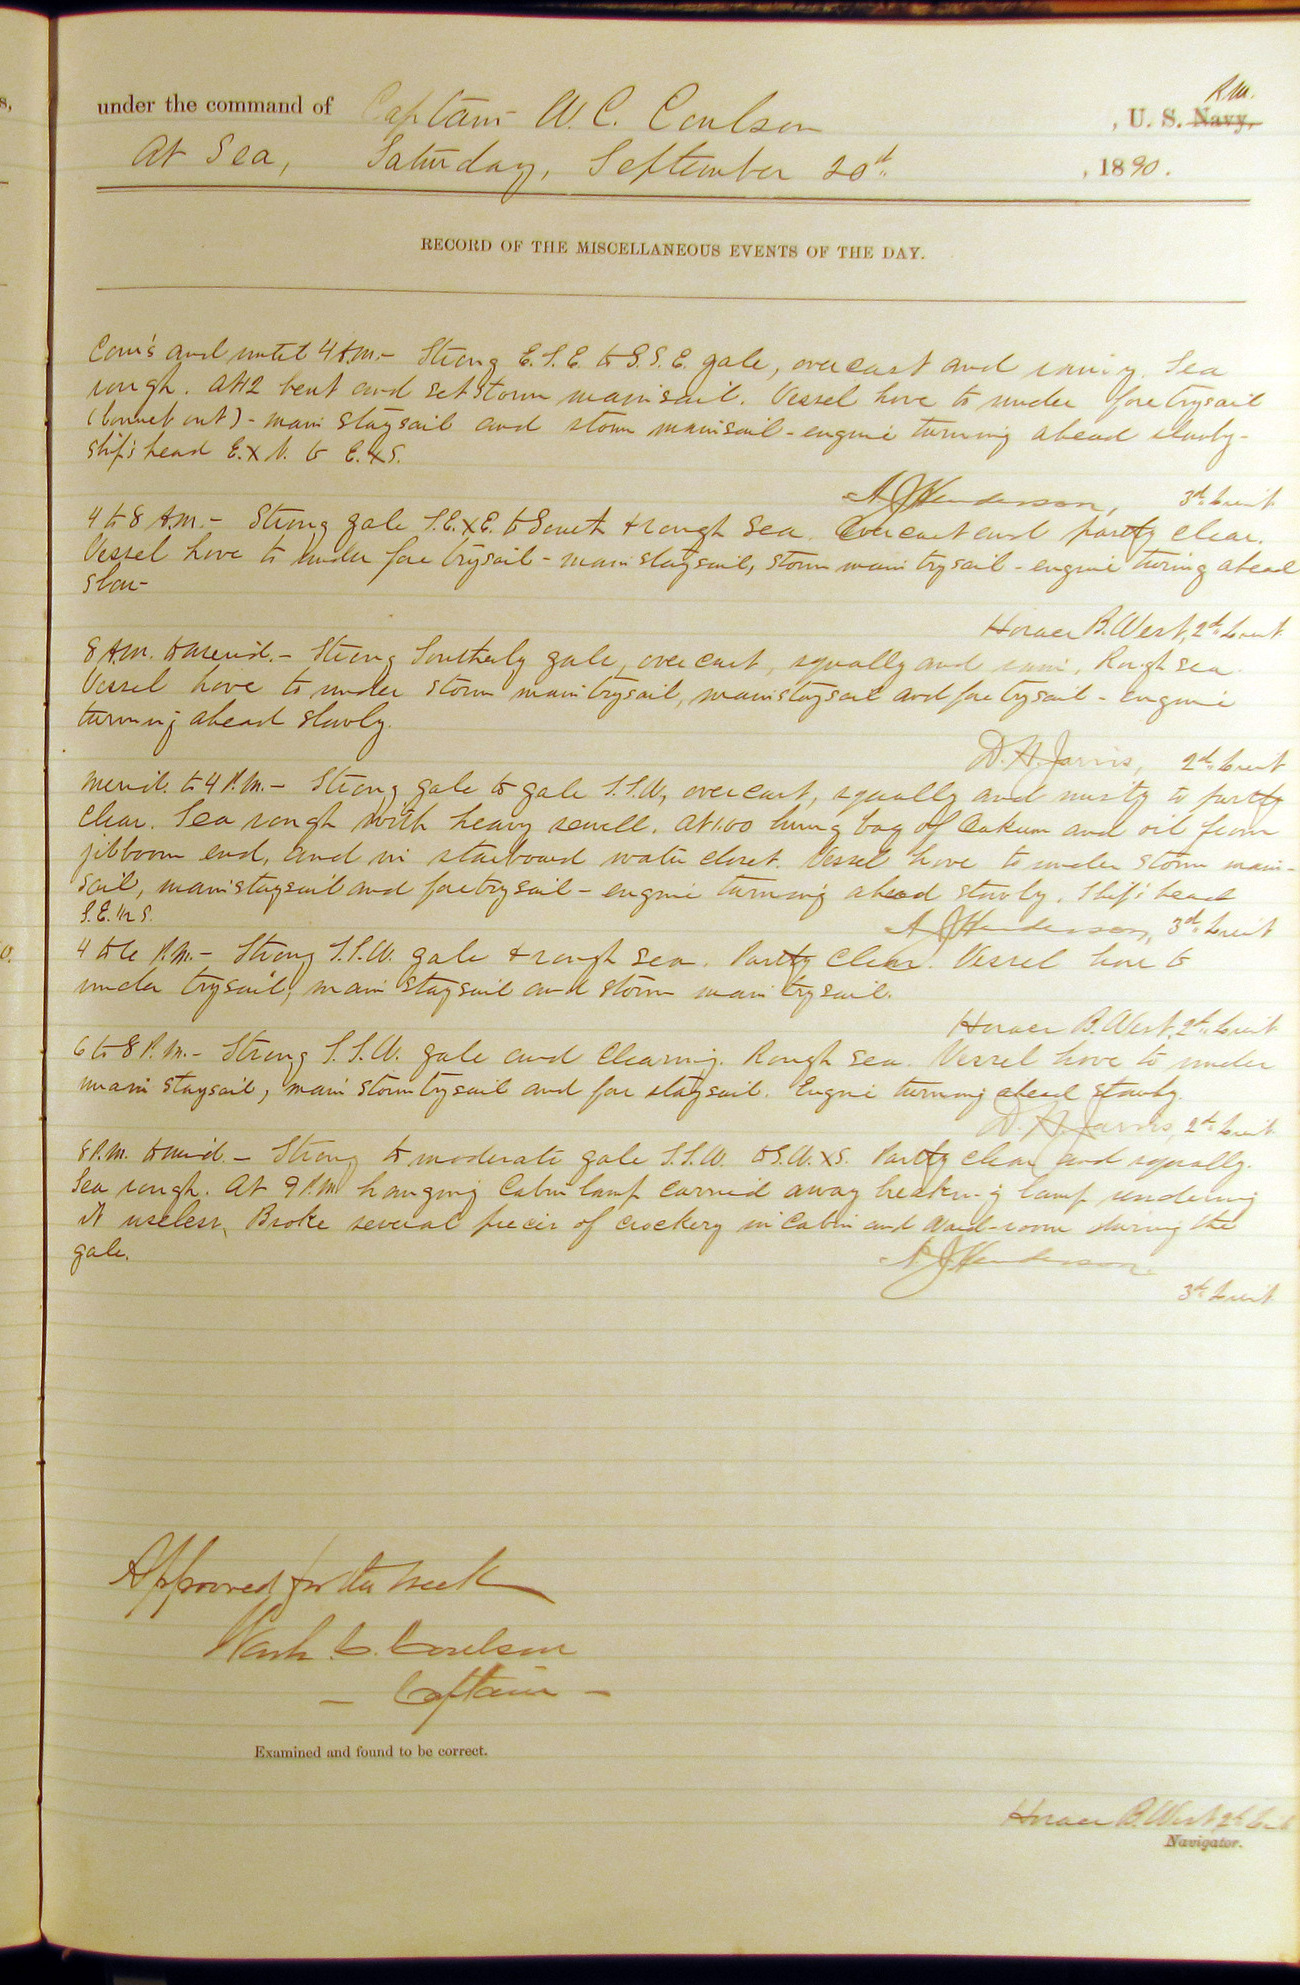 s,
R.M.
under the command of Captain W. C. Coulson , U. S. Navy,
At Sea, Saturday, September 20th , 1890.
RECORD OF THE MISCELLANEOUS EVENTS OF THE DAY.
Com's and until 4 A.M. - Strong E.S.E. to S.S.E. gale, overcast and rainy. Sea
rough. At 12 bent and set storm mainsail. Vessel hove to under fore trysail
(bonnet out) - main staysail and storm mainsail - engine turning ahead slowly -
ship's head E.xN. to E.xS.
A J Henderson, 3d. Lieut
4 to 8 A.M. - Strong gale S.E.xE. to South & rough sea. Overcast and partly clear.
Vessel hove to under fore trysail - main staysail, storm main trysail - engine turing ahead
slow -
Horace B. West, 2d. Lieut
8 A.M. to merid. - Strong Southerly gale, overcast, squally and rain, Rough sea.
Vessel hove to under storm main trysail, main staysail and fore trysail - engine
turning ahead slowly.
D. H. Jarvis, 2d. Lieut
Merid. to 4 P.M. - Strong gale to gale S.S.W, overcast, squally and misty to partly
clear. Sea rough with heavy swell. At 1.00 hung bag of Oakum and oil from
jibboom end, and in starboard water closet. Vessel hove to under storm main-
sail, main staysail and fore trysail - engine turning ahead slowly. Ship's head
S.E. S.
A J Henderson, 3d. Lieut
4 to 6 P.M. - Strong S.S.W. gale & rough sea. Partly clear. Vessel hove to
under trysail, main staysail and storm main trysail.
Horace B. West, 2d. Lieut
6 to 8 P.M. - Strong S.S.W. gale and clearing. Rough sea. Vessel hove to under
main staysail, main storm trysail and fore staysail. Engine turning ahead slowly.
D. H. Jarvis, 2d. Lieut
8 P.M. to mid. - Strong to moderate gale S.S.W. to S.W.xS. Partly clear and squally.
Sea rough. At 9 P.M. hanging Cabin lamp carried away breaking lamp rendering
it useless, Broke several pieces of crockery in Cabin and Ward-room during the
gale.
A J Henderson
3d. Lieut
Approved for the week
Wash. C. Coulson
- Captain -
Examined and found to be correct.
Horace B. West 2d Lieut
Navigator.